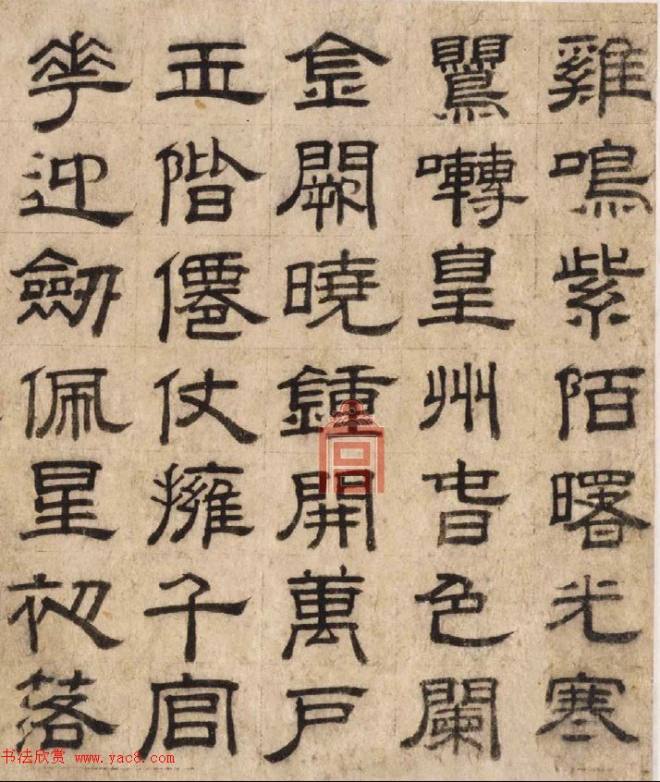 雞鳴紫陌曙光寒
鸎囀皇州旾色闌
金闕曉鍾開萬戶
玉階僊仗擁千官
花迎劍佩星初落
书法欣赏 www.yac8.com